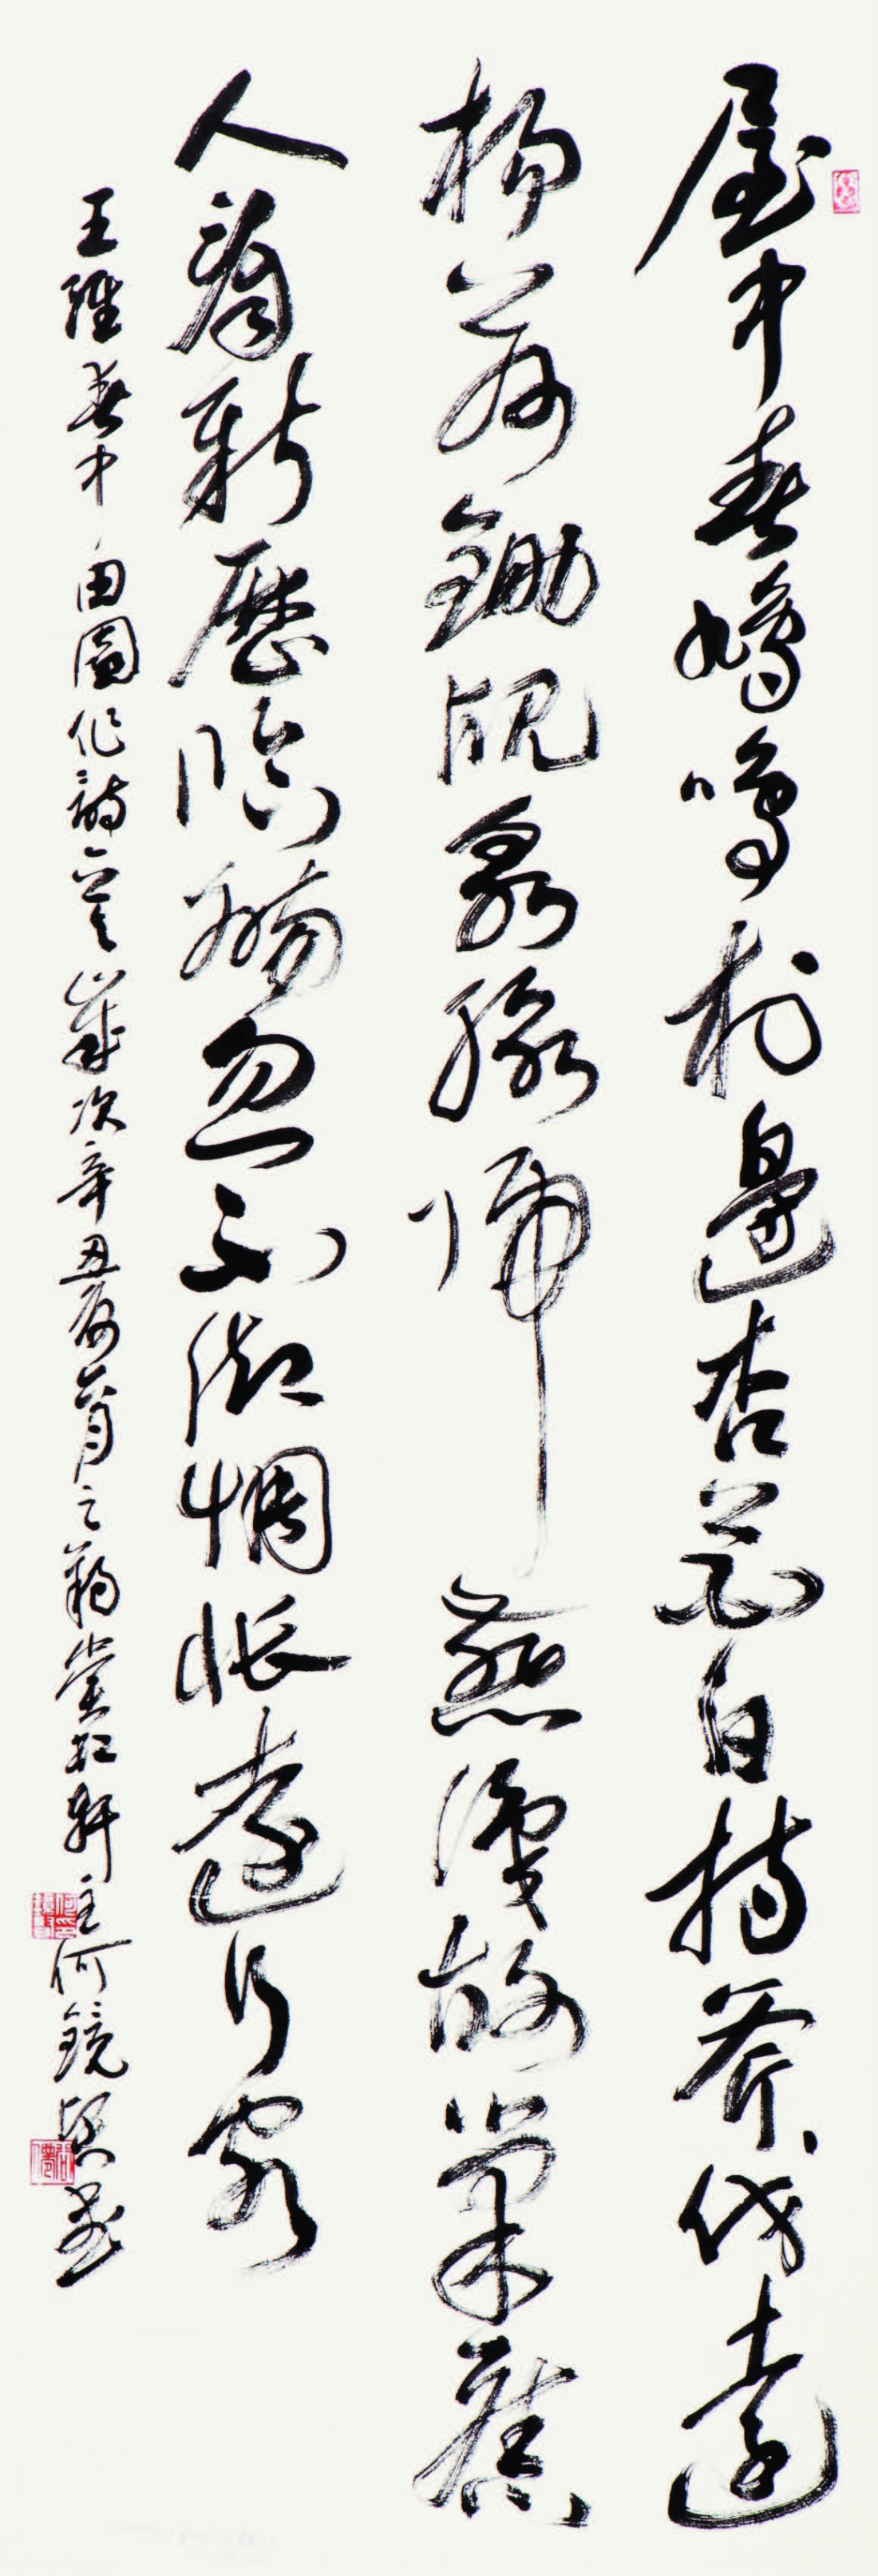 屋中春鳩鳴村邊杏花白持斧伐遠
楊荷鋤覘泉脈歸燕識故巢舊
人看新歷臨觴忽不御惆悵遠行客
王維春中田園作詩意歲次辛丑之堂軒主何鏡賢書